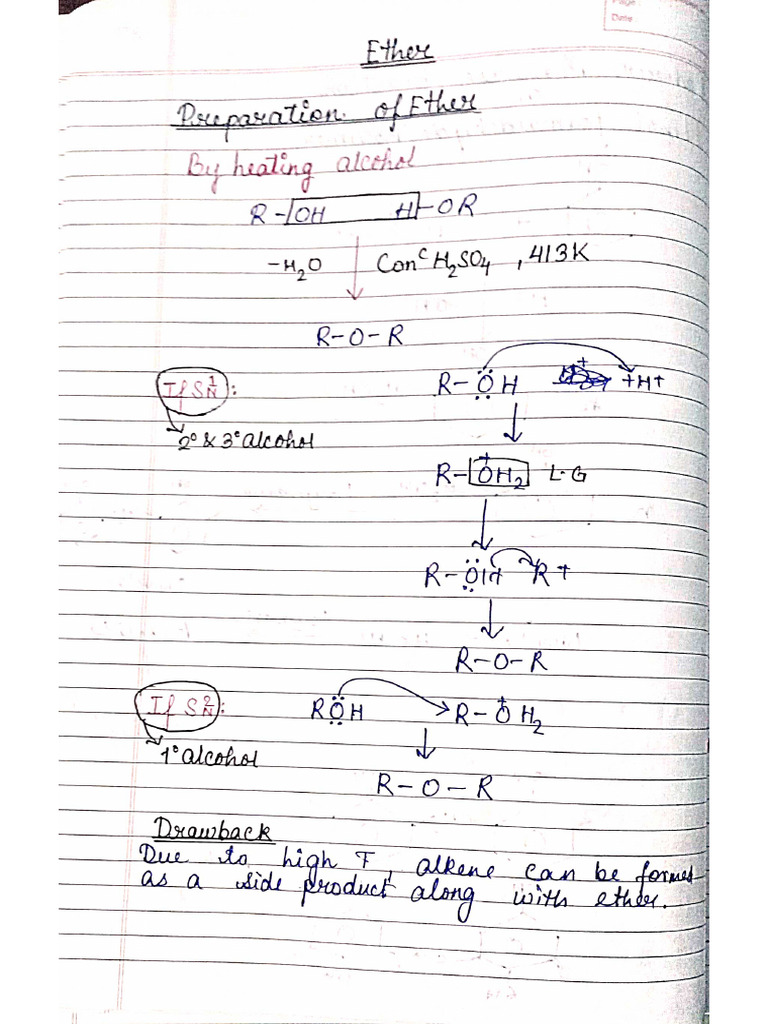 Page
Date
Ether
Preparation of Ether
By heating alcohol
R-OH H-OR
-H₂O Conᶜ H₂SO₄ , 413K
R-O-R
If SN1: R-ÖH +H+
2° & 3° alcohol
R-OH₂ L.G
+
R-ÖH R+
R-O-R
If SN2: RÖH R-OH₂
+
1° alcohol
R-O-R
Drawback
Due to high T, alkene can be formed
as a side product along with ether.